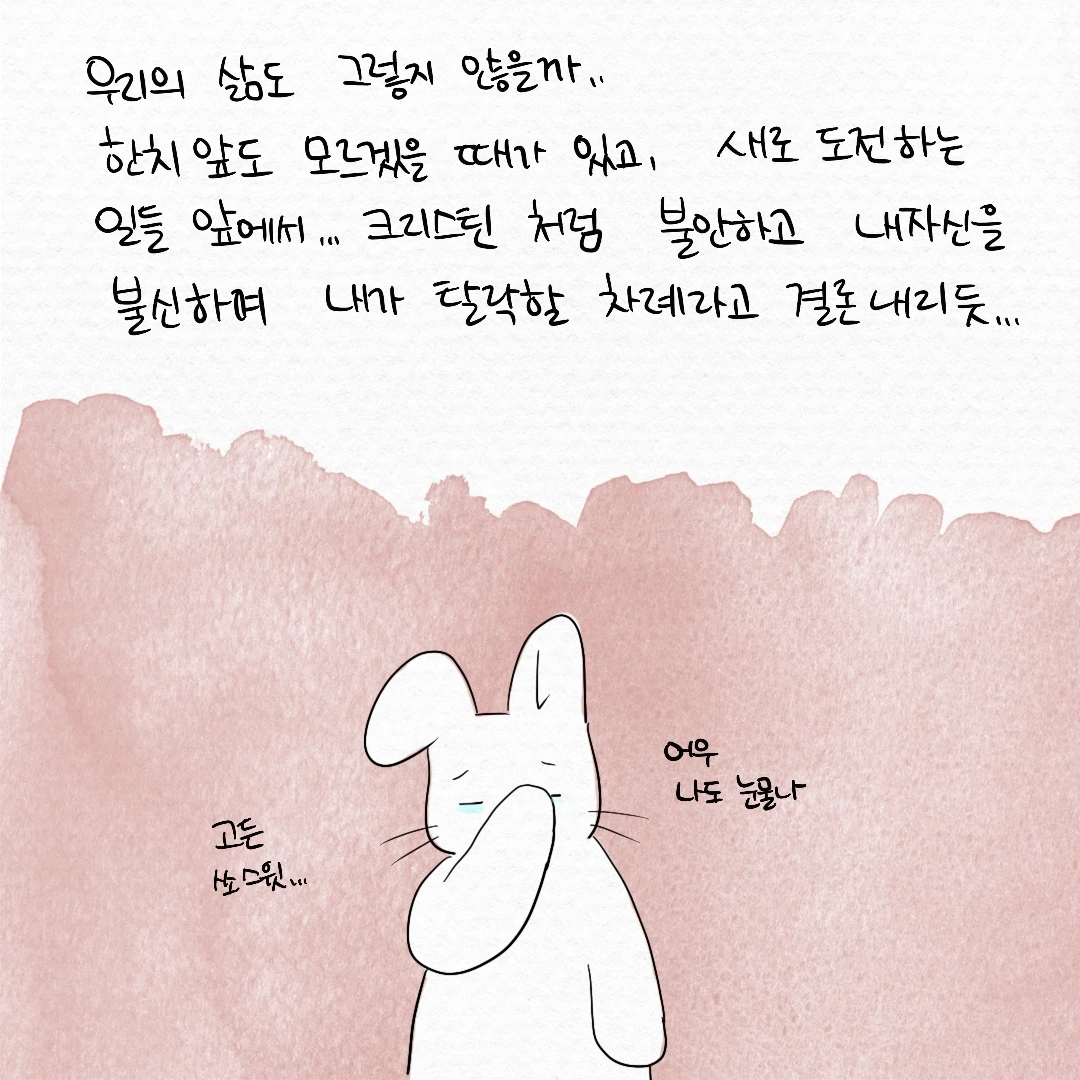 우리의 삶도 그렇지 않을까..
한치 앞도 모르겠을 때가 있고, 새로 도전하는
일들 앞에서... 크리스틴 처럼 불안하고 내자신을
불신하며 내가 탈락할 차례라고 결론내리듯...
어우
나도 눈물나
고든
쏘스윗...